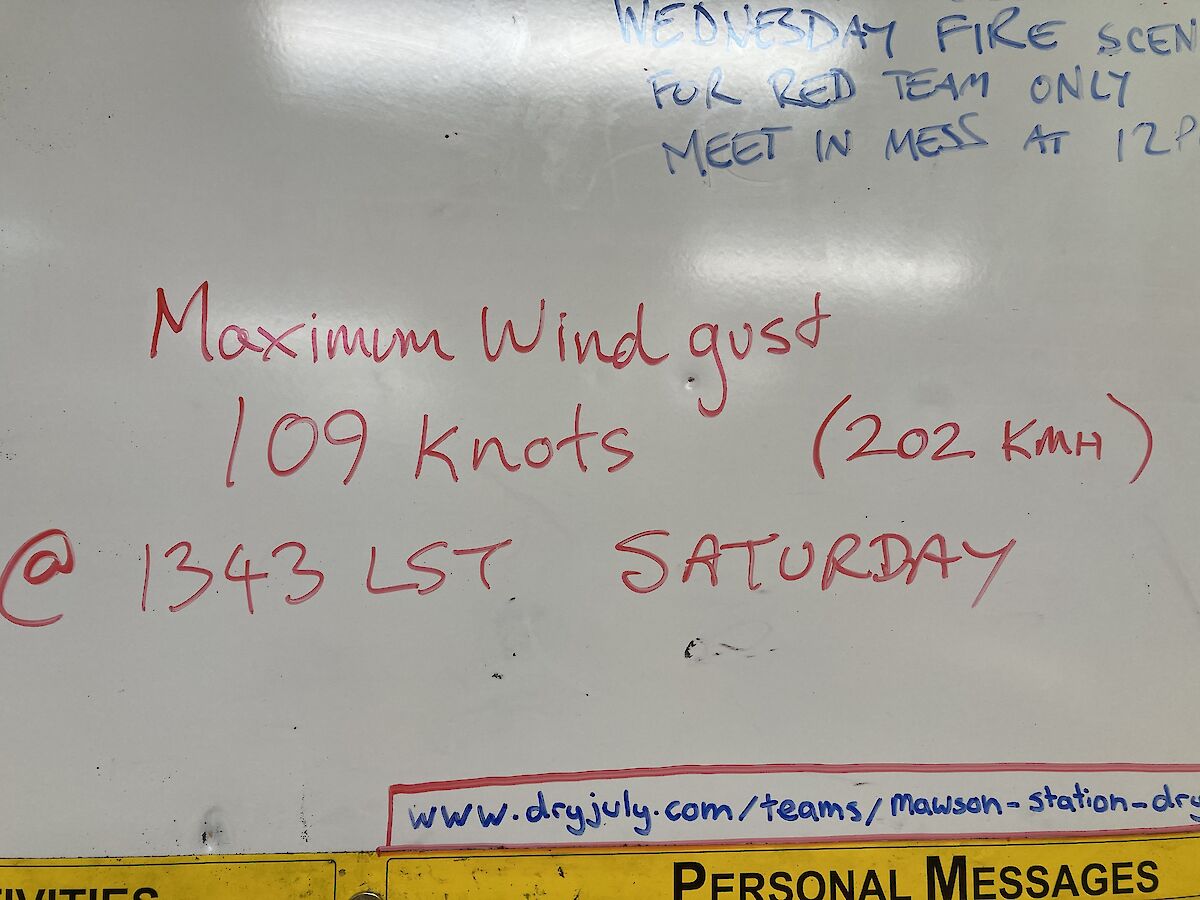 WEDNESDAY FIRE SCEN
FOR RED TEAM ONLY
MEET IN MESS AT 12P
Maximum Wind gust
109 Knots (202 KMH)
@ 1343 LST SATURDAY
www.dryjuly.com/teams/mawson-station-dry
IVITIES
PERSONAL MESSAGES